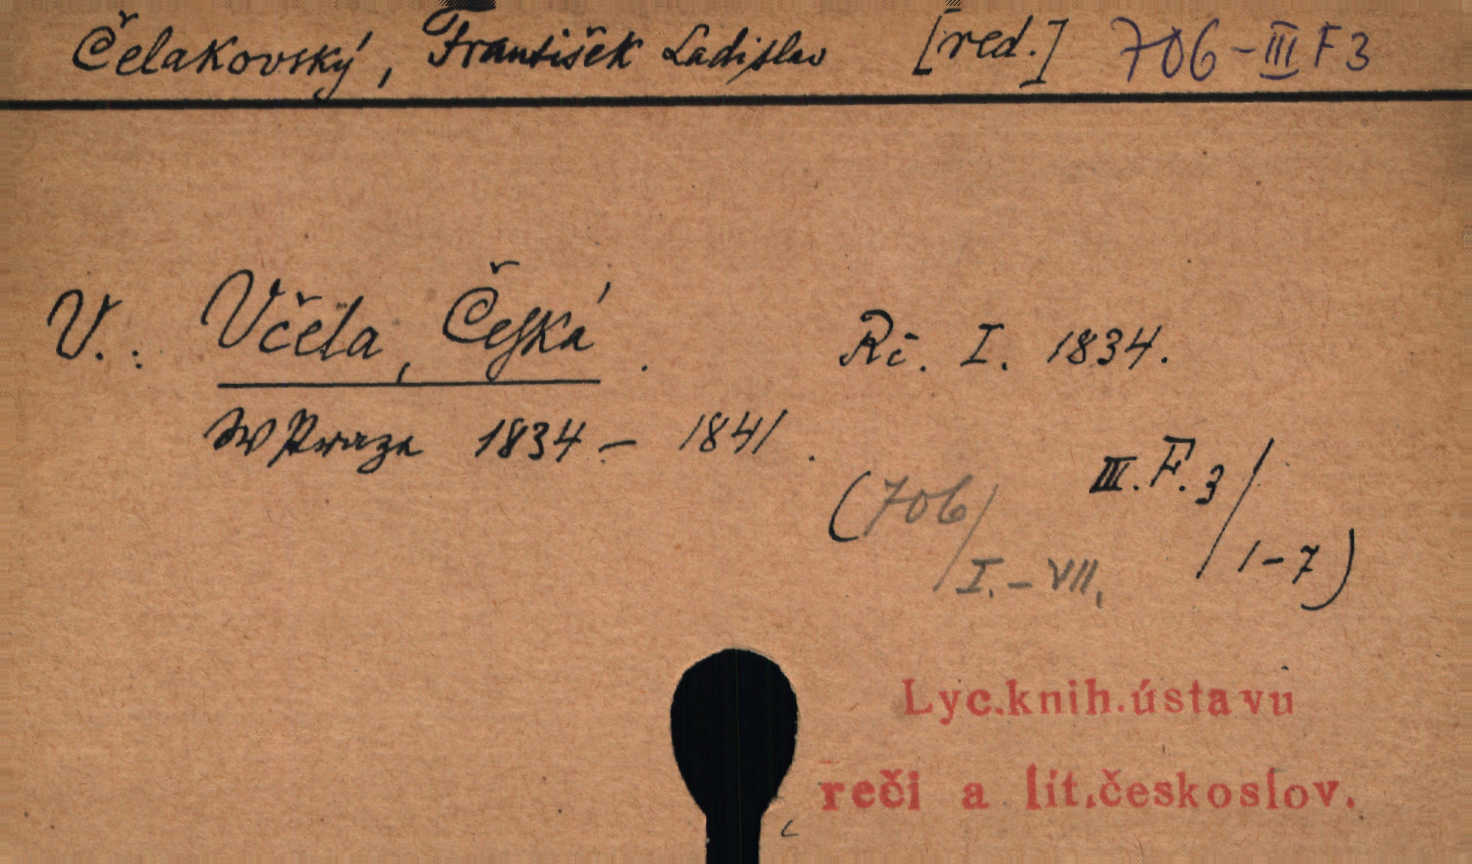 Čelakovský, František Ladislav [red.] 706-III F 3
V.: Včela, Česká. Rč. I. 1834.
W Praze 1834 - 1841.
(706/I.-VII, III. F. 3/1-7)
Lyc.knih.ústavu
reči a lit.českoslov.